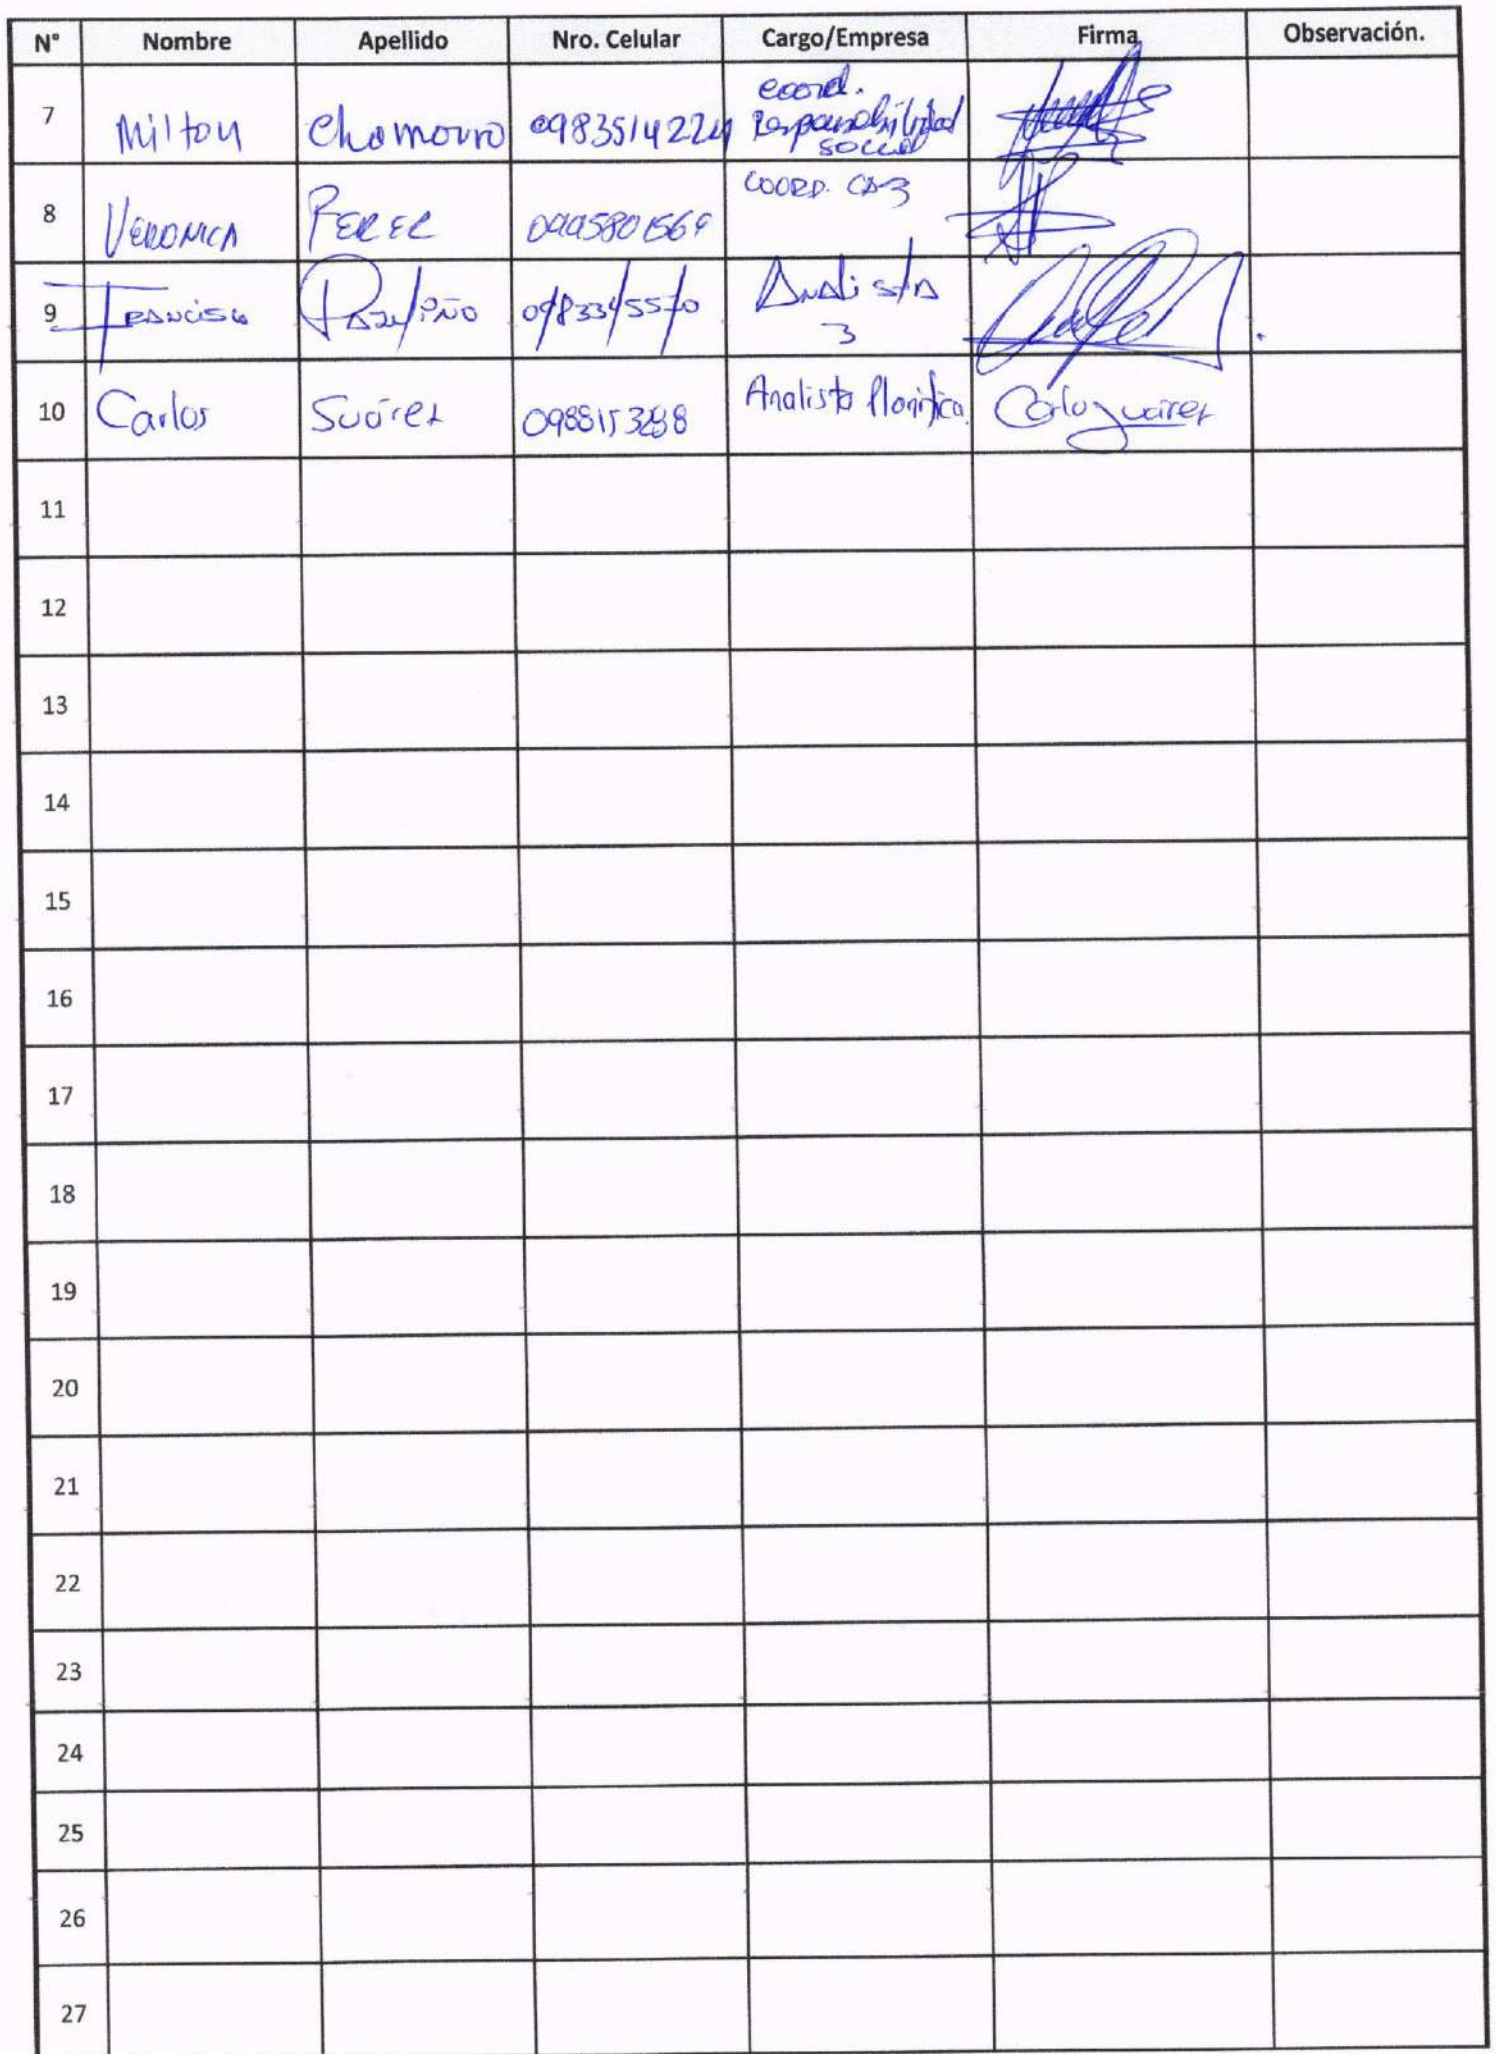 N° Nombre Apellido Nro. Celular Cargo/Empresa Firma Observación.
7 Milton Chamorro 0983514224 coord. Responsabilidad social
8 VERONICA PEREZ COORD.
9 FRANCISCO 0983345570 Analista 3
10 Carlos Suárez Analista Carlos Suárez
11
12
13
14
15
16
17
18
19
20
21
22
23
24
25
26
27